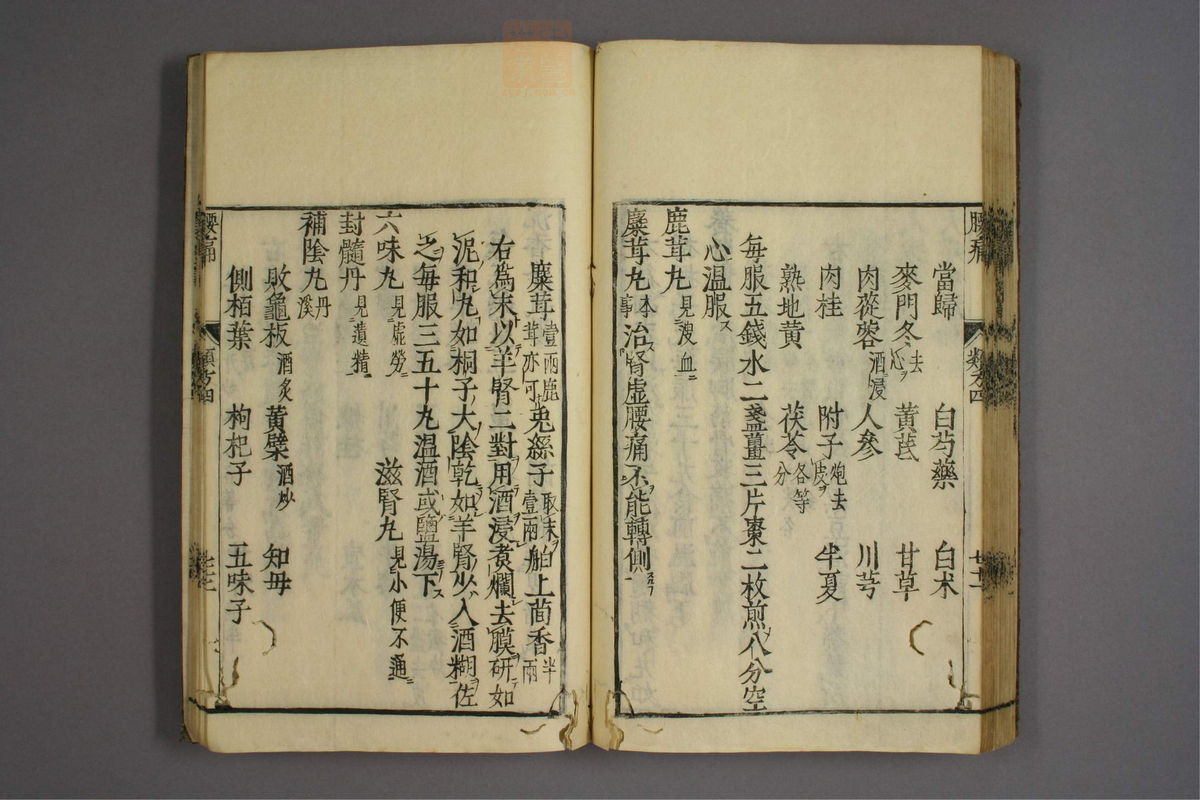 腰痛 類方四 七十一
當歸 白芍藥 白朮
麥門冬去心ヲ 黃芪 甘草
肉蓯蓉酒浸 人參 川芎
肉桂 附子炮去皮ヲ 半夏
熟地黃 茯苓各等分
每服五錢水二盞薑三片棗二枚煎八分空
心溫服ス
鹿茸丸見溲血ニ
麋茸丸本事 治腎虛腰痛不能轉側
麋茸壹兩鹿茸亦可 兎絲子取末壹兩 舶上茴香半兩
右爲末以羊腎二對用酒浸煮爛去膜研如
泥和丸如桐子大陰乾如羊腎少入酒糊佐
之每服三五十丸溫酒或鹽湯下
六味丸見虛勞ニ 滋腎丸見小便不通ニ
封髓丹見遺精ニ
補陰丸丹溪
敗龜板酒炙 黃檗酒炒 知母
側栢葉 枸杞子 五味子
腰痛 類方四